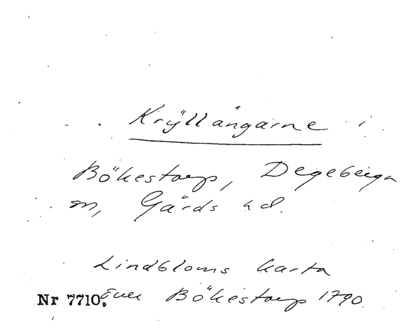 Kryllängarne i
Bökestorp, Degeberga
sn, Gärds hd.
Lindbloms karta
Nr 7710. över Bökestorp 1790.